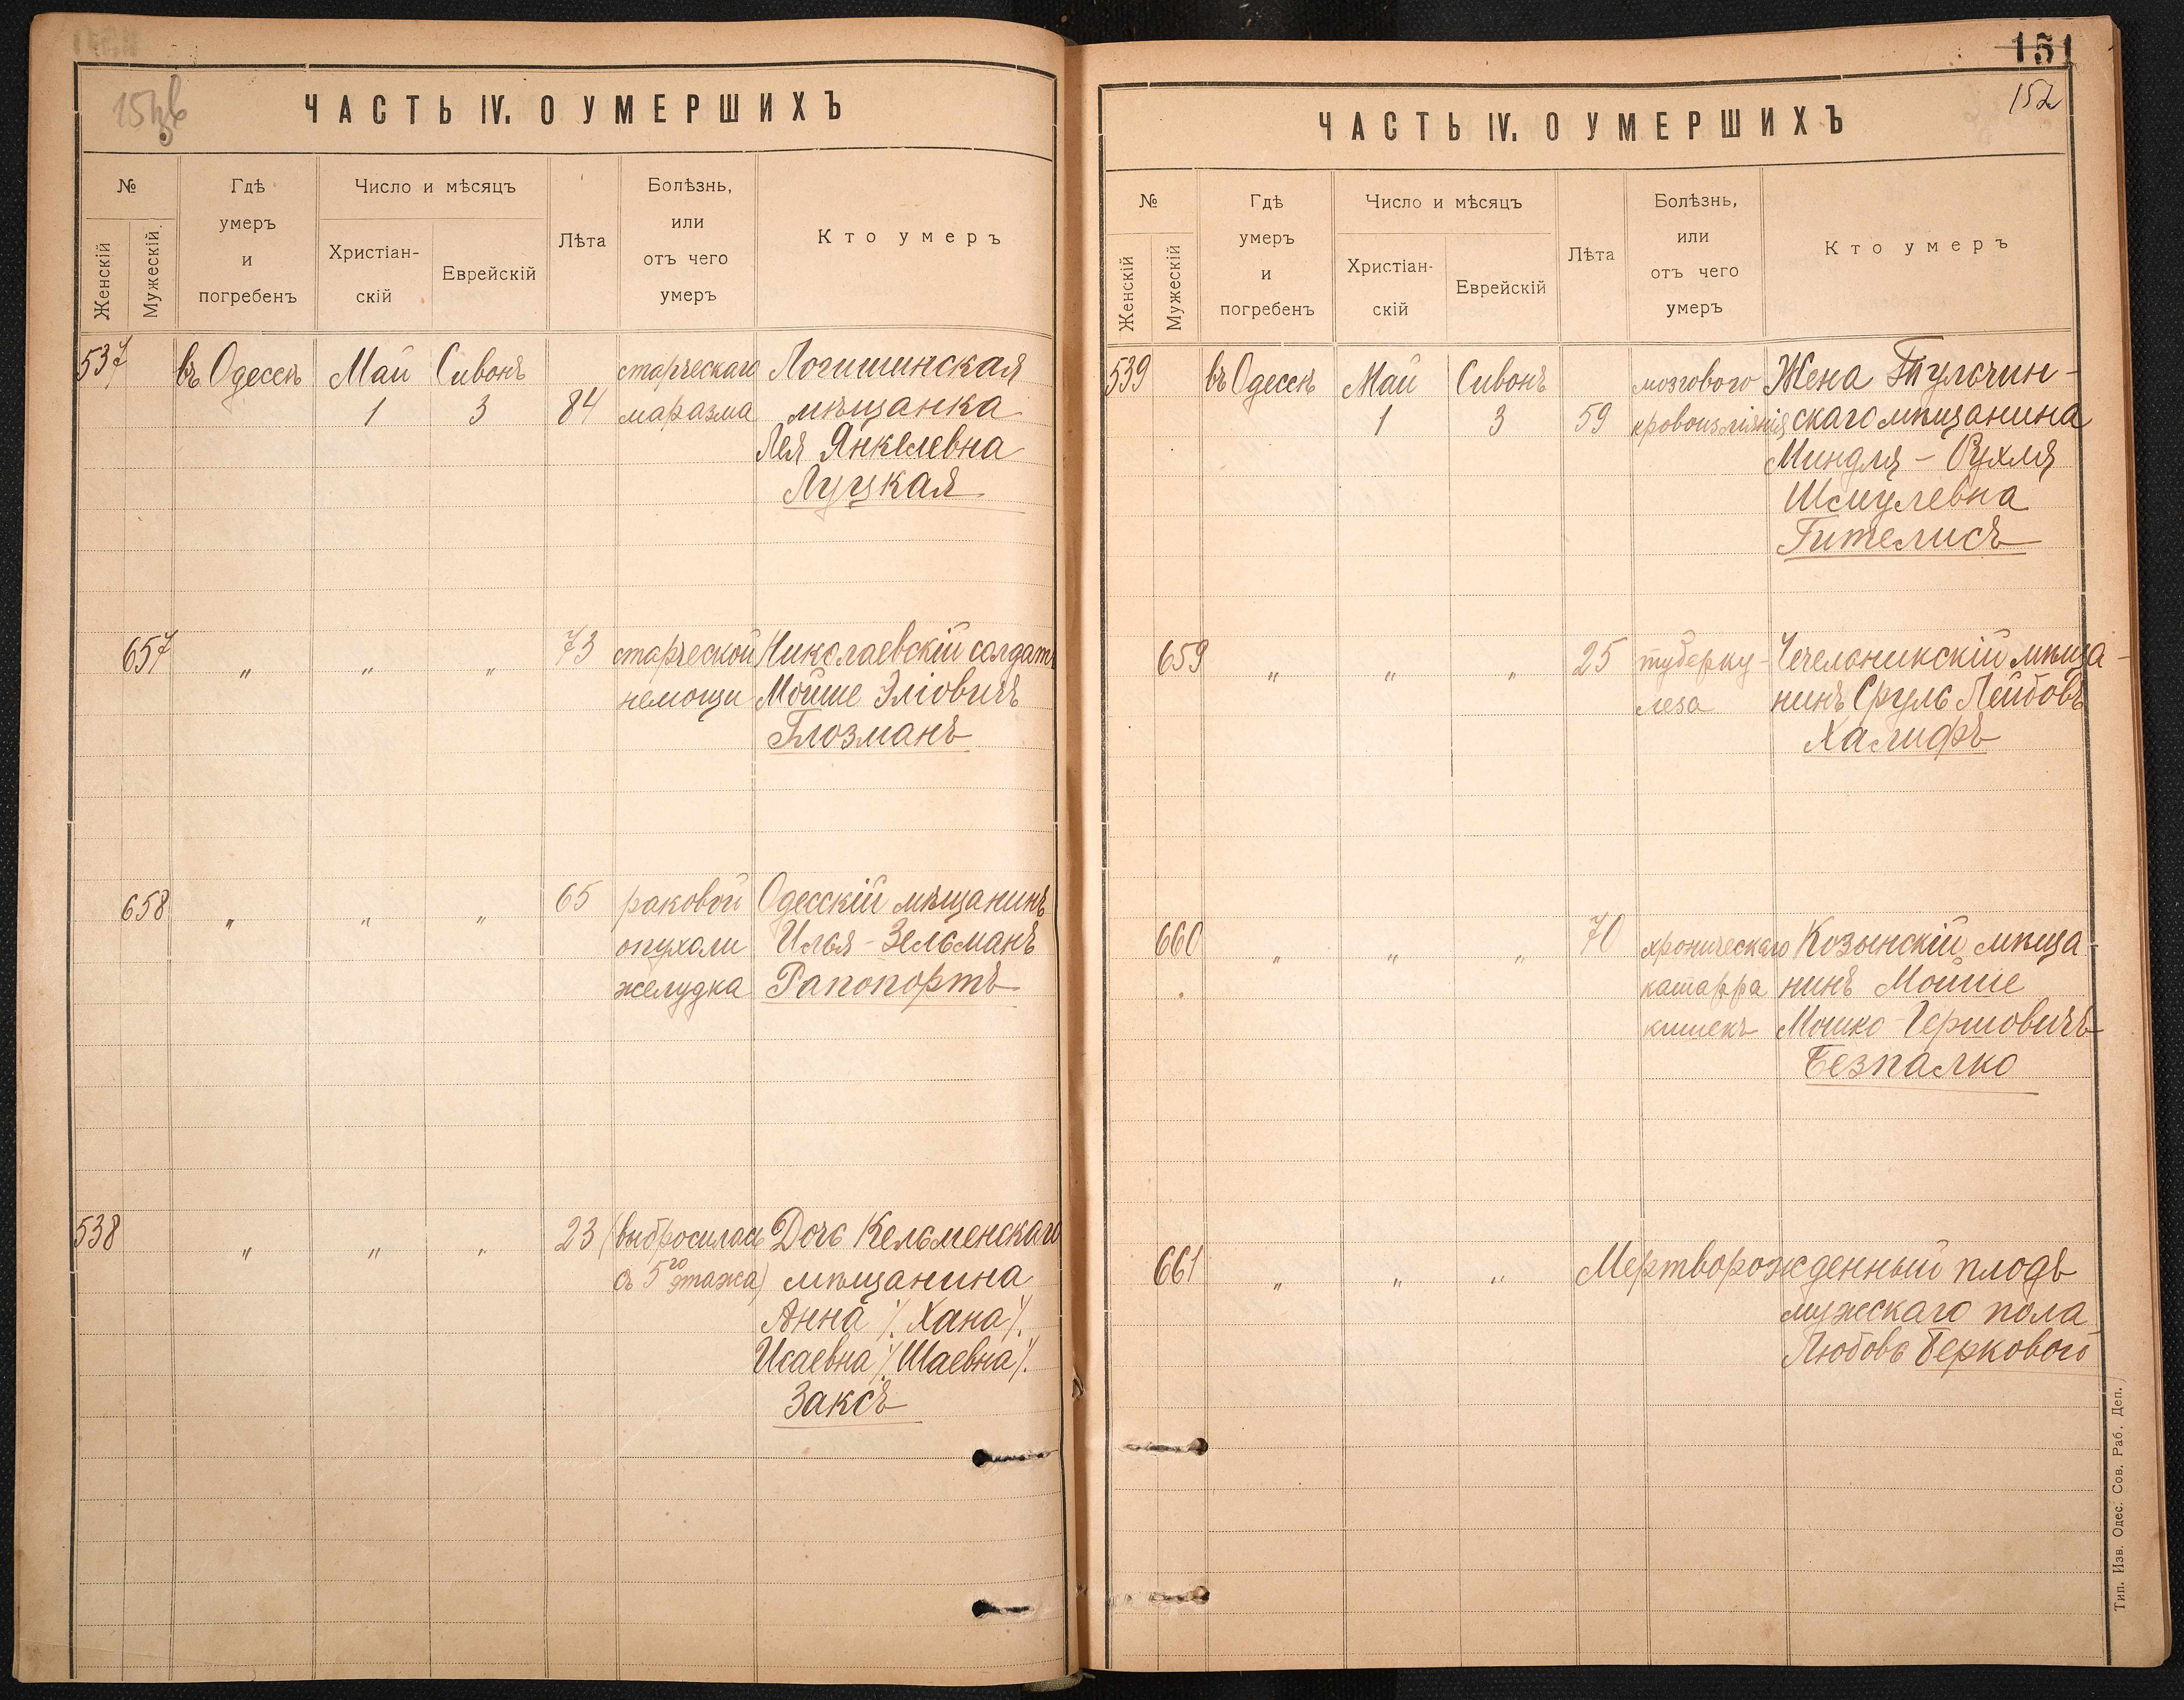 ЧАСТЬ IV. О УМЕРШИХЪ
№
Женскій
Мужескій
Гдѣ
умеръ
и
погребенъ
Число и мѣсяцъ
Христіан-
скій
Еврейскій
Лѣта
Болѣзнь,
или
отъ чего
умеръ
Кто умеръ
537 въ Одессѣ Май Сивонъ старческаго Логишинская
1 3 84 маразма мѣщанка
Лея Янкелевна
Луцкая
657 " " " 73 старческой Николаевскій солдатъ
немощи Мойше Эліовичъ
Глозманъ
658 " " " 65 раковой Одесскій мѣщанинъ
опухоли Илья-Зельманъ
желудка Рапопортъ
538 " " " 23 (выбросилась Дочь Кельменскаго
съ 5го этажа) мѣщанина
Анна /. Хана /.
Исаевна /. Шаевна /.
Заксъ
151
152
ЧАСТЬ IV. О УМЕРШИХЪ
№
Женскій
Мужескій
Гдѣ
умеръ
и
погребенъ
Число и мѣсяцъ
Христіан-
скій
Еврейскій
Лѣта
Болѣзнь,
или
отъ чего
умеръ
Кто умеръ
539 въ Одессѣ Май Сивонъ мозгового Жена Тульчин-
1 3 59 кровоизліянія скаго мѣщанина
Миндля - Рухля
Шмулевна
Гителисъ
659 " " " 25 туберку- Чечельникскій мѣща-
леза нинъ Сруль Лейбовъ
Халифъ
660 " " " 70 хроническаго Козынскій мѣща
катарра нинъ Мойше
кишекъ Мошко Гершовичъ
Безпалко
661 " " " Мертворожденный плодъ
мужескаго пола
Любовь Берковой
Тип. Изв. Одес. Сов. Раб. Деп.